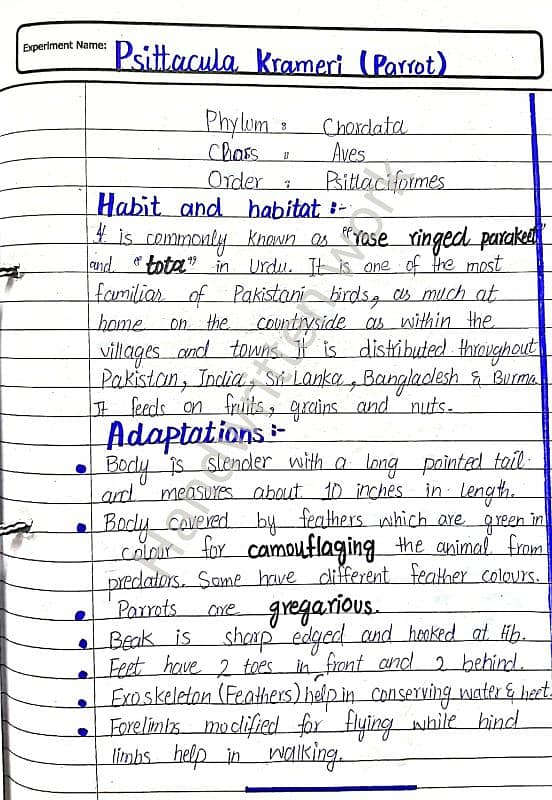 Experiment Name: Psittacula Krameri (Parrot)
Phylum : Chordata
Class " Aves
Order : Psittaciformes
Habit and habitat :-
It is commonly known as "rose ringed parakeet"
and "tota" in Urdu. It is one of the most
familiar of Pakistani birds, as much at
home on the countryside as within the
villages and towns. It is distributed throughout
Pakistan, India, Sri Lanka, Bangladesh & Burma.
It feeds on fruits, grains and nuts.
Adaptations :-
Body is slender with a long pointed tail
and measures about 10 inches in length.
Body covered by feathers which are green in
colour for camouflaging the animal from
predators. Some have different feather colours.
Parrots are gregarious.
Beak is sharp edged and hooked at tip.
Feet have 2 toes in front and 2 behind.
Exoskeleton (Feathers) help in conserving water & heet.
Forelimbs modified for flying while hind
limbs help in walking.
Handwritten work